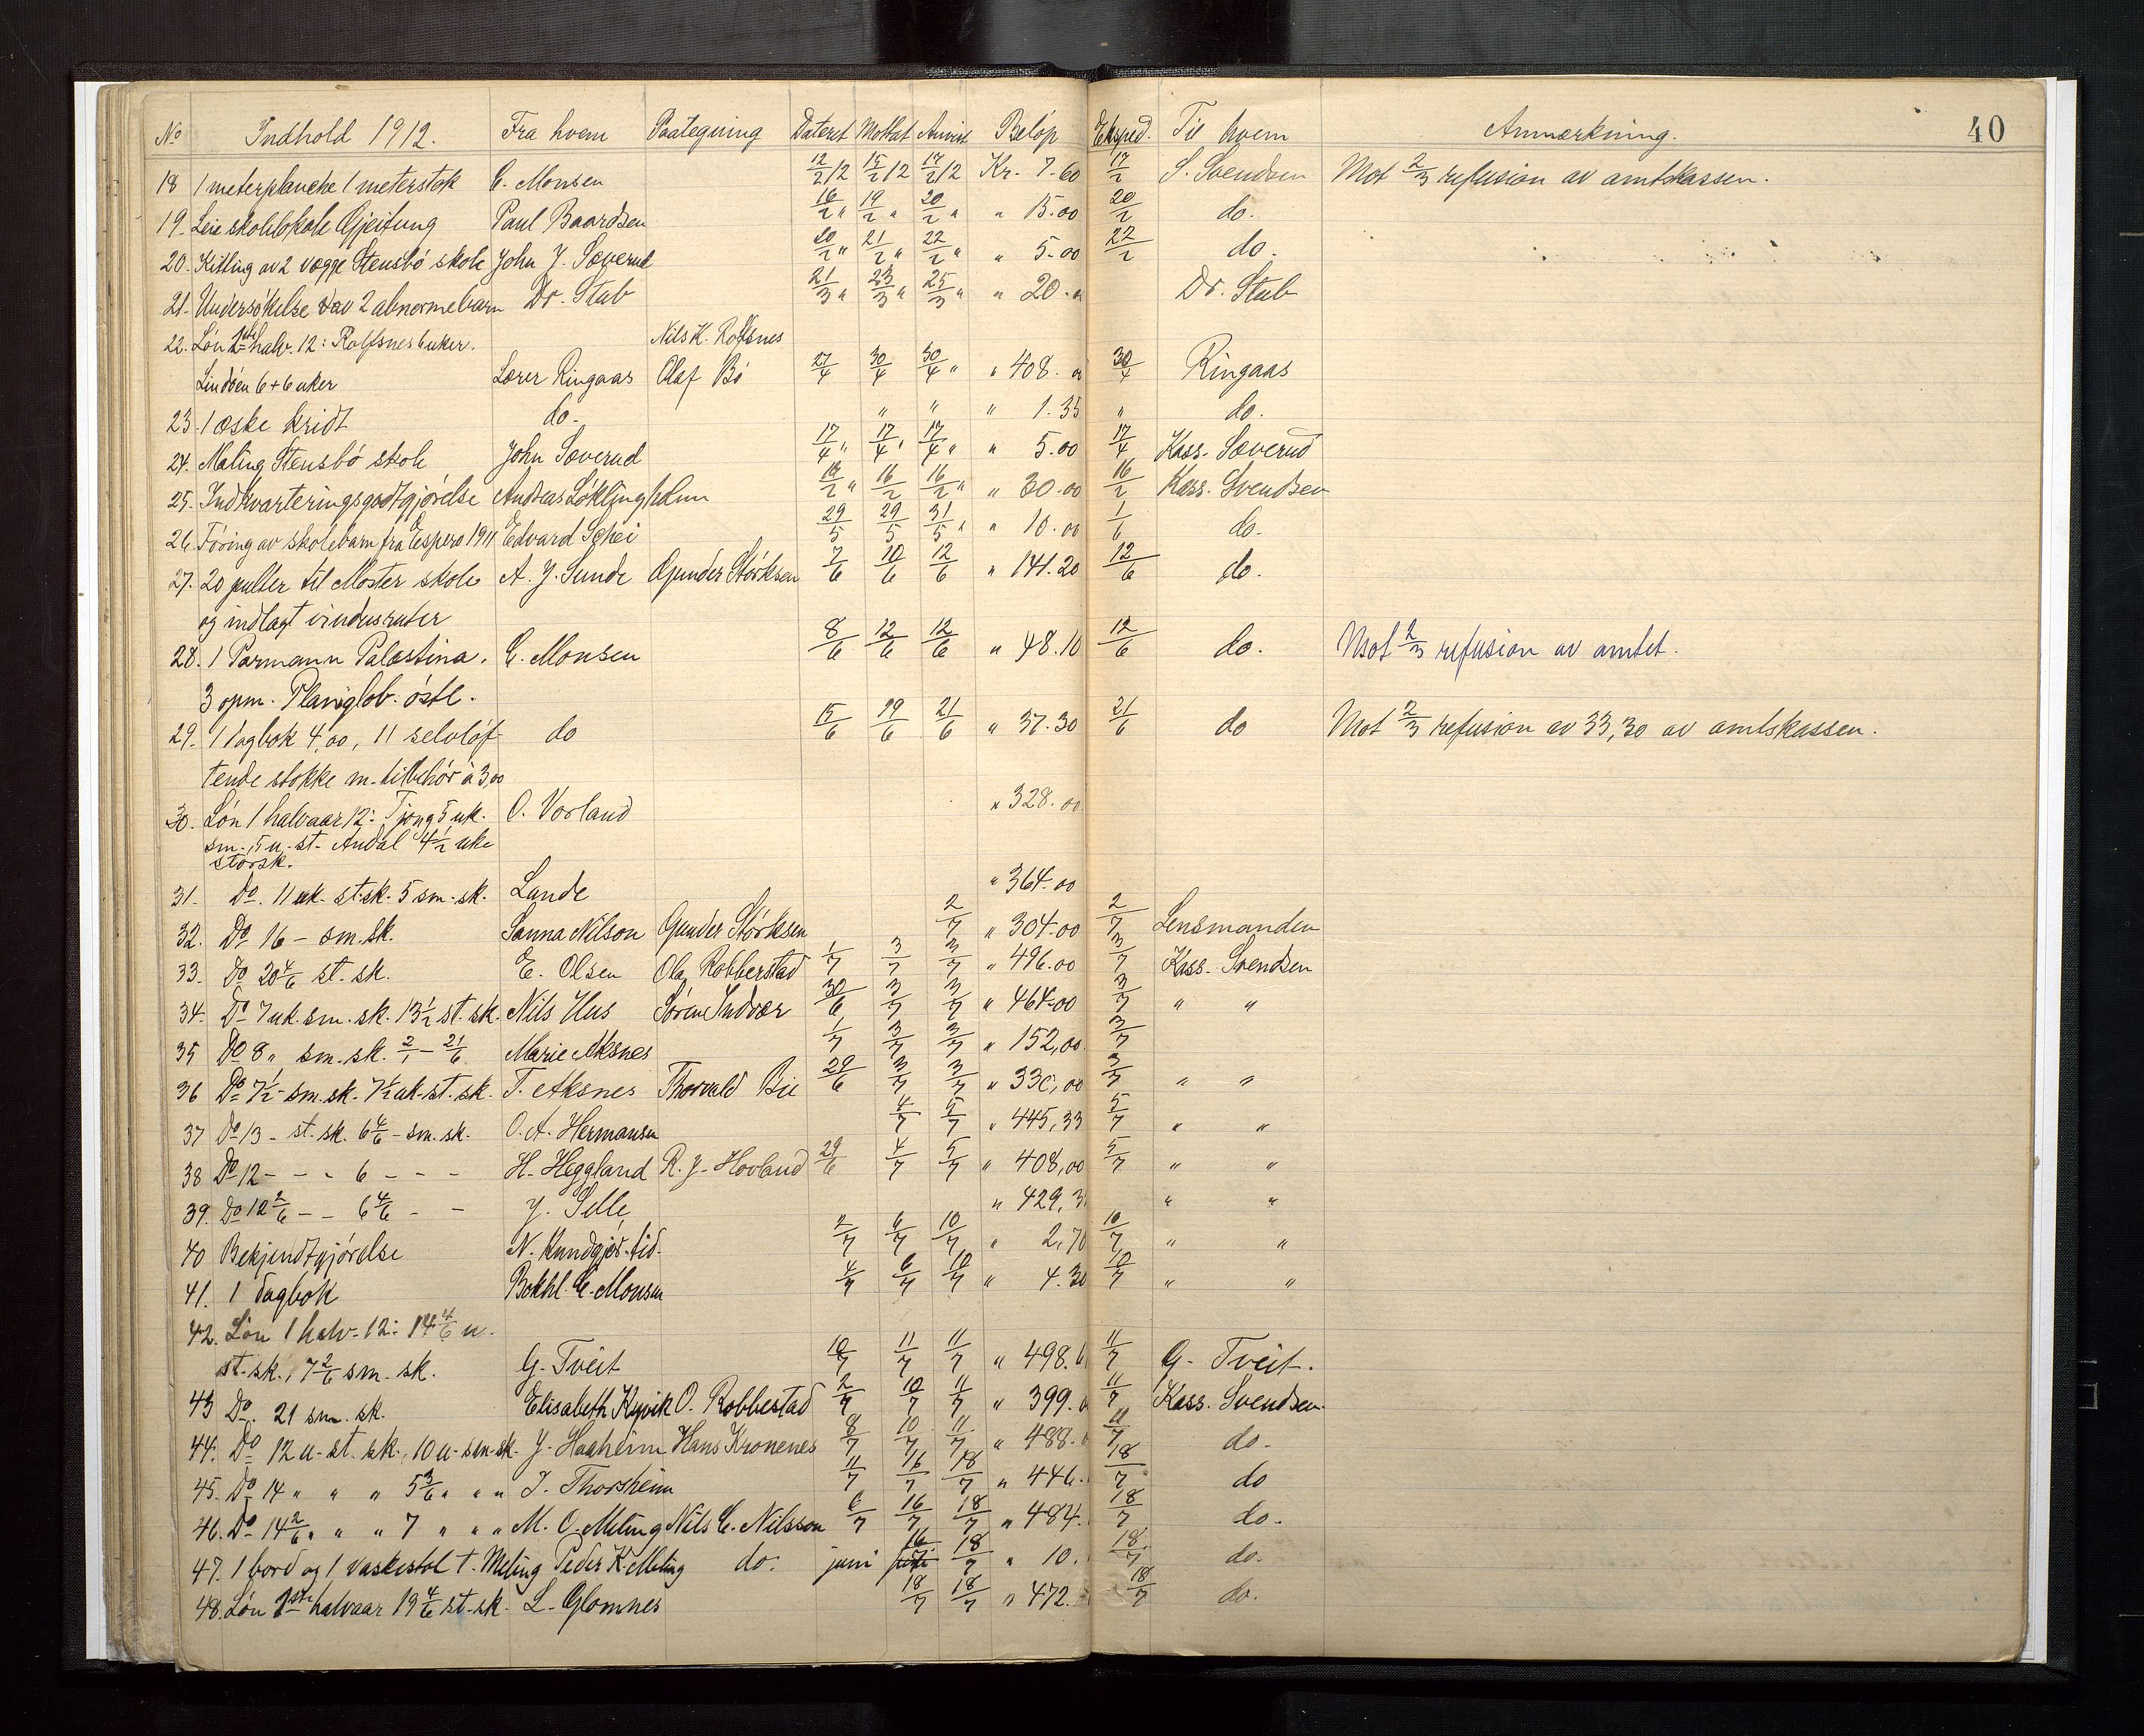 40
No Indhold 1912. Fra hvem Paategning Datert Mottat Anvist Beløp Eksped. Til hvem Anmerkning.
18 1 meterplanche 1 meterstok E. Monsen 12/2 12 15/2 12 17/2 12 Kr. 7.60 17/2 S. Svendsen Mot 2/3 refusion av amtskassen.
19. Leie skolelokale Gjeitung Paul Baardsen 16/2 " 19/2 " 20/2 " " 15.00 20/2 do.
20. Kitling av 2 vægge Stensbø skole John J. Sæverud 20/2 " 21/2 " 22/2 " " 5.00 22/2 do.
21. Undersøkelse av 2 abnorme barn Dr. Stub 21/3 " 23/3 " 25/3 " " 20. " Dr. Stub
22. Løn 1ste halv. 12: Rolfsnes 6 uker. Nils K. Rolfsnes
Lindøen 6+6 uker Lærer Ringaas Olaf Bø 27/4 30/4 30/4 " " 408. " 30/4 Ringaas
23. 1 æske kridt do. " " " 1.35 " do.
24. Maling Stensbø skole John Sæverud 17/4 " 17/4 " 17/4 " " 5.00 17/4 Kass. Sæverud
25. Indkvarteringsgodtgjørelse Andreas Løklingholm 14/2 " 16/2 16/2 " " 30.00 16/2 Kass. Svendsen
26. Føring av skolebarn fra Espevær 1911 Edvard Schei 29/5 29/5 31/5 " " 10.00 1/6 do.
27. 20 pulter til Moster skole A. J. Sunde Gunder Størksen 7/6 10/6 12/6 " 141.20 12/6 do.
og indlagt vindusruter
28. 1 Parmann Palæstina. E. Monsen 8/6 12/6 12/6 " 48.10 12/6 do. Mot 2/3 refusion av amtet.
3 opm. Planiglob. østl.
29. 1 dagbok 4,00, 11 selvløf- do 15/6 19/6 21/6 " 37.30 21/6 do Mot 2/3 refusion av 33,30 av amtskassen.
tende stokke m. tilbehør à 3,00
30. Løn 1 halvaar 12: Tjong 5 uk. O. Vorland " 328.00
sm., 5 u. st. Andal 4 1/2 uke
størsk.
31. Do. 11 uk. st.sk. 5 sm. sk. Lande " 364.00
32. Do 16 - sm. sk. Sanna Nilson Gunder Størksen 2/7 " 304.00 2/7 Lensmanden
33. Do 20 4/6 st. sk. E. Olsen Ola Robberstad 1/7 3/7 3/7 " 496.00 3/7 Kass. Svendsen
34. Do 7 uk. sm. sk. 13 1/2 st. sk. Nils Hus Søren Indvær 30/6 3/7 3/7 " 464.00 3/7 " "
35 Do 8 " sm. sk. 2/1 - 21/6 Marie Aksnes 1/7 3/7 3/7 " 152,00 3/7
36 Do 7 1/2 - sm. sk. 7 1/2 uk. st. sk. T. Aksnes Thorvald Bie 29/6 3/7 3/7 " 330,00 3/7 " "
37 Do 13 - st. sk. 6 4/6 - sm. sk. O. A. Hermansen 4/7 5/7 " 445,33 5/7 " "
38 Do 12 - - - 6 - - - H. Heggland R. J. Hovland 29/6 4/7 5/7 " 408,00 5/7 " "
39. Do 12 2/6 - - 6 4/6 - - J. Selle " 429,3 " "
40 Bekjendtgjørelse N. Kundgjør. tid. 2/7 6/7 10/7 " 2,70 10/7 " "
41. 1 dagbok Bokhl. E. Monsen 4/7 6/7 10/7 " 4.30 10/7 " "
42. Løn 1 halv. 12: 14 4/6 u.
st. sk., 7 2/6 sm. sk. G. Tveit 10/7 11/7 11/7 " 498.6 11/7 G. Tveit.
43 Do. 21 sm. sk. Elisabeth Kyvik O. Robbestad 2/7 10/7 11/7 " 399. 11/7 Kass. Svendsen.
44. Do 12 u. st. sk., 10 u. sm. sk. J. Haaheim Hans Kronenes 8/7 10/7 11/7 " 488. 11/7 do.
45. Do 14 " " " 5 3/6 " " " J. Thorsheim 11/7 16/7 18/7 " 446. 18/7 do
46. Do 14 2/6 " " " 7 " " " M. O. Meling Nils E. Nilsson 6/7 16/7 18/7 " 484. 18/7 do.
47. 1 bord og 1 vaskestol t. Meling Peder K. Meling do. juni 16 18/7 " 10. 18/7 do.
48. Løn 1ste halvaar 19 4/6 st. sk. L. Glomnes 18/7 18/7 " 472. 18/7 do.